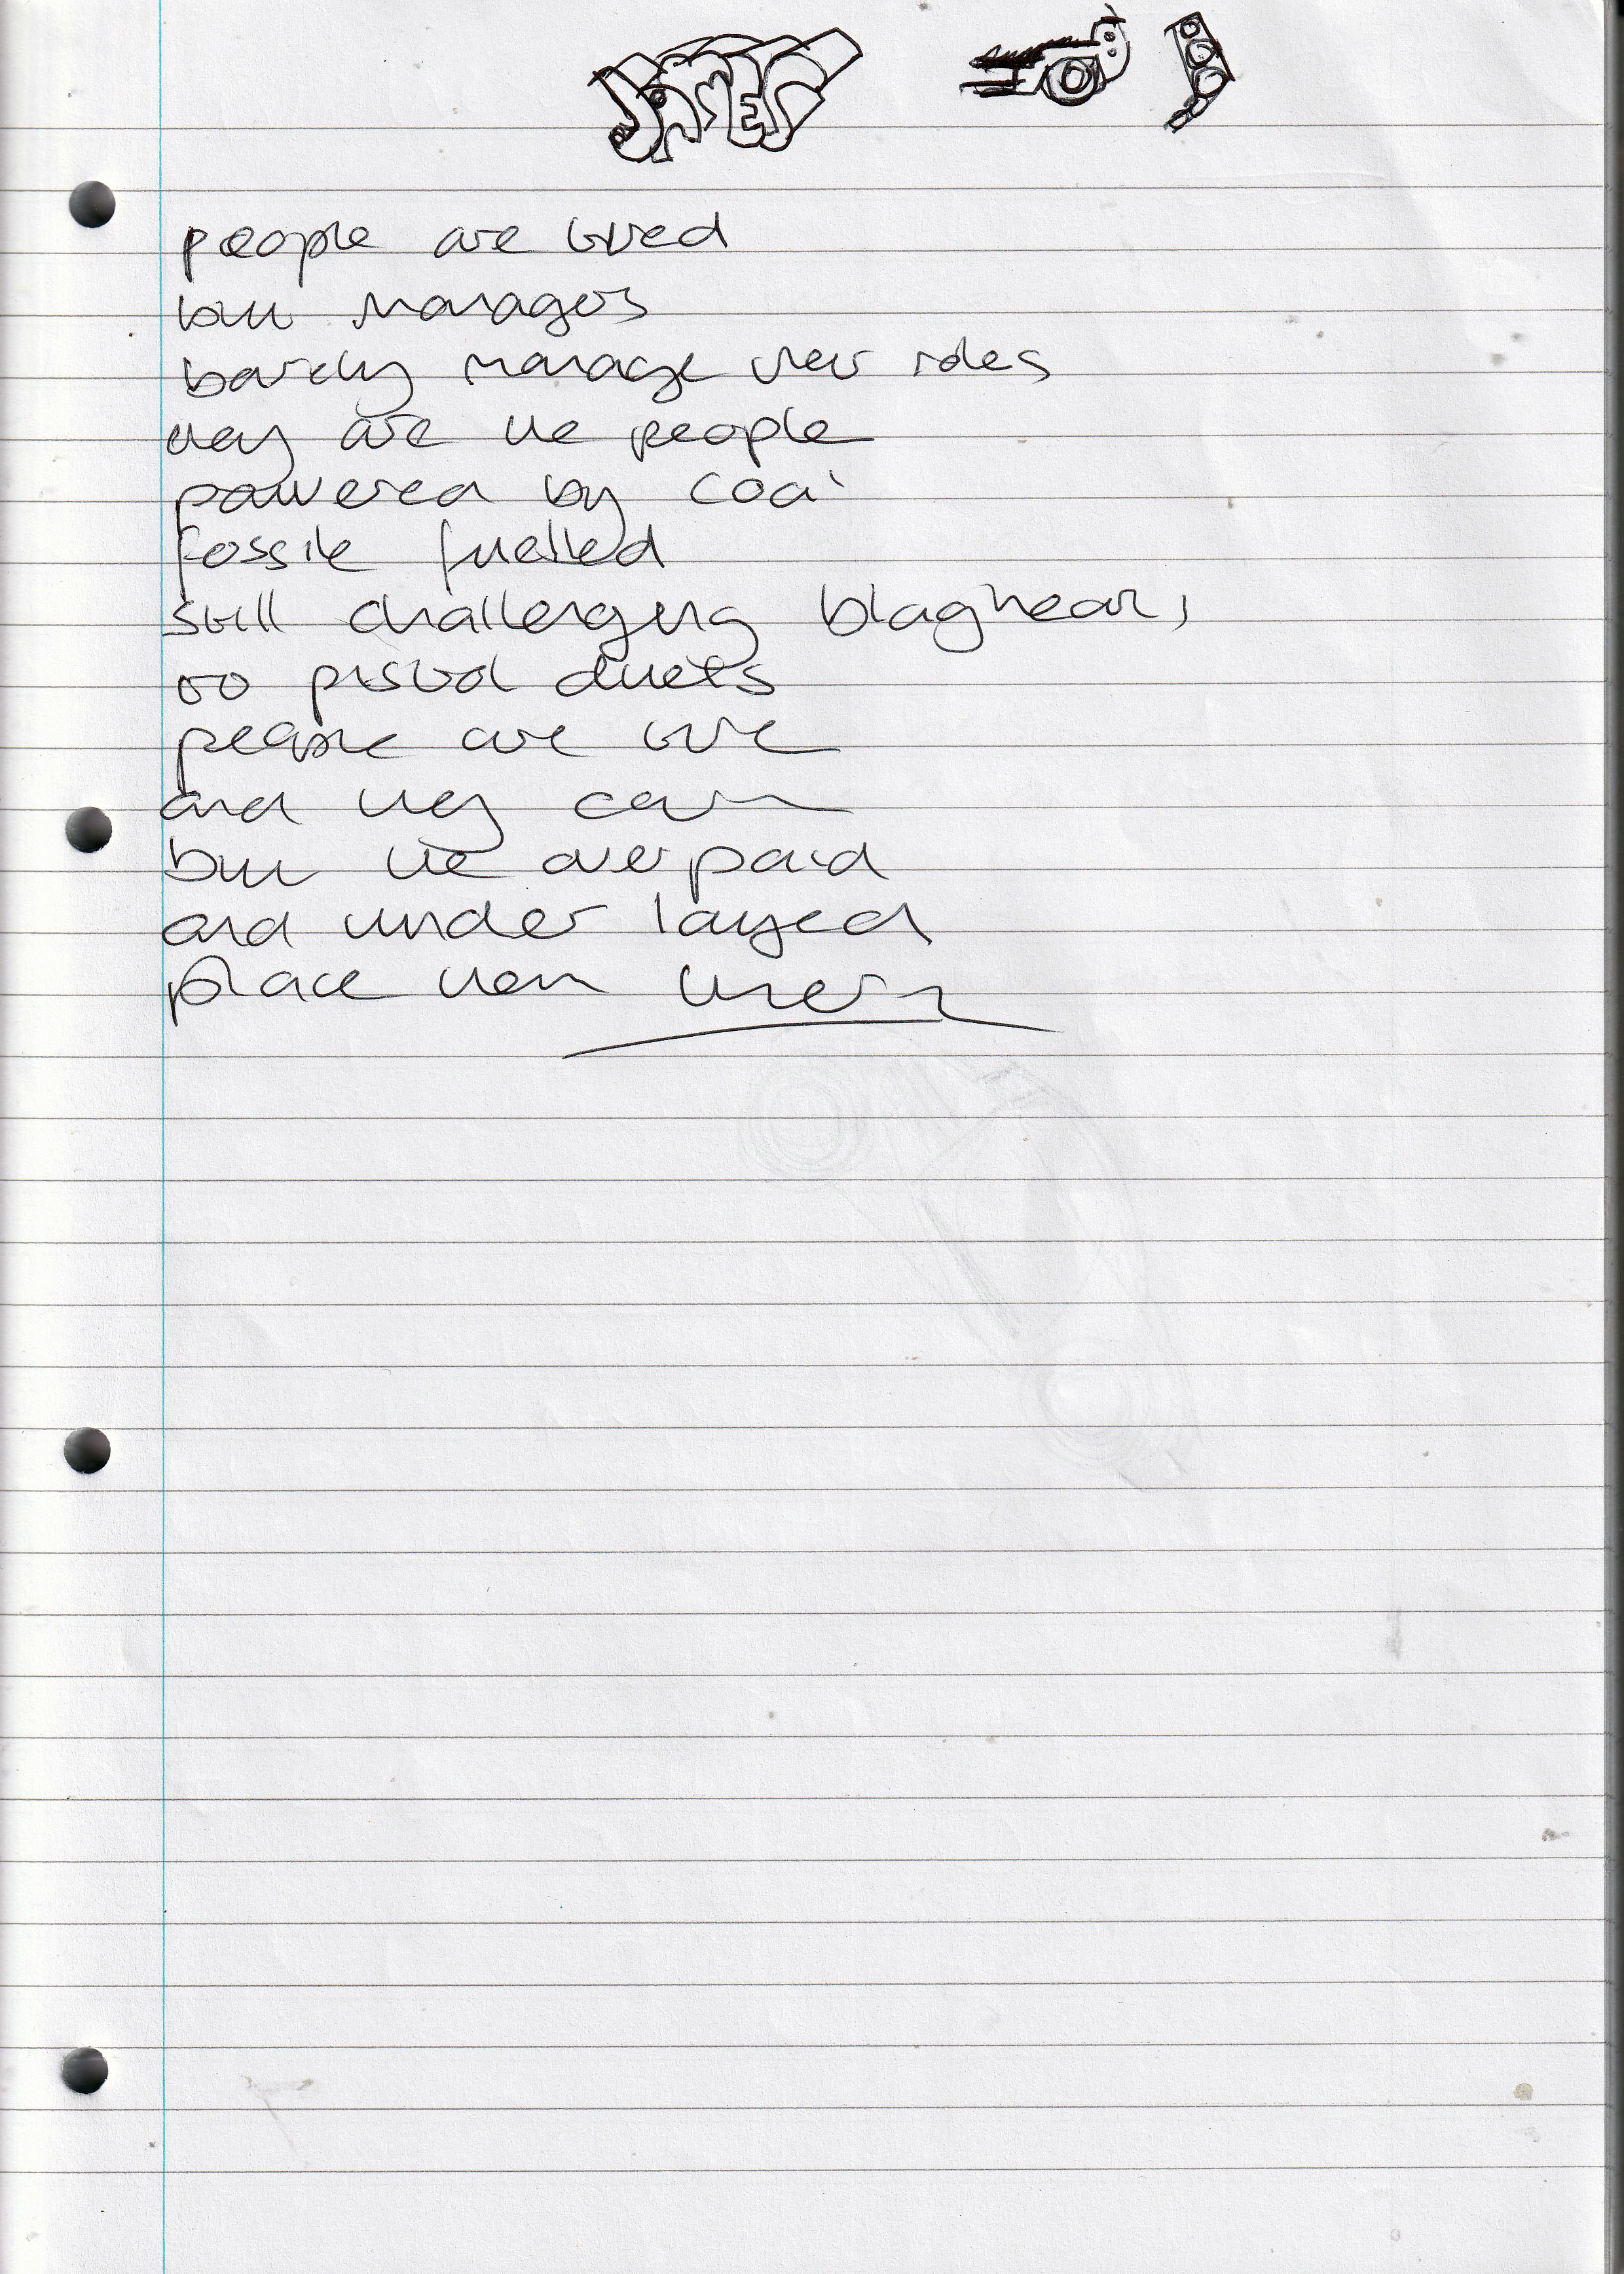 JAMES
people are tired
but managers
barely manage their roles
they are the people
powered by coal
fossile fuelled
still challenging
to pistol duels
people are
and they can
but the over paid
and under layed
place them